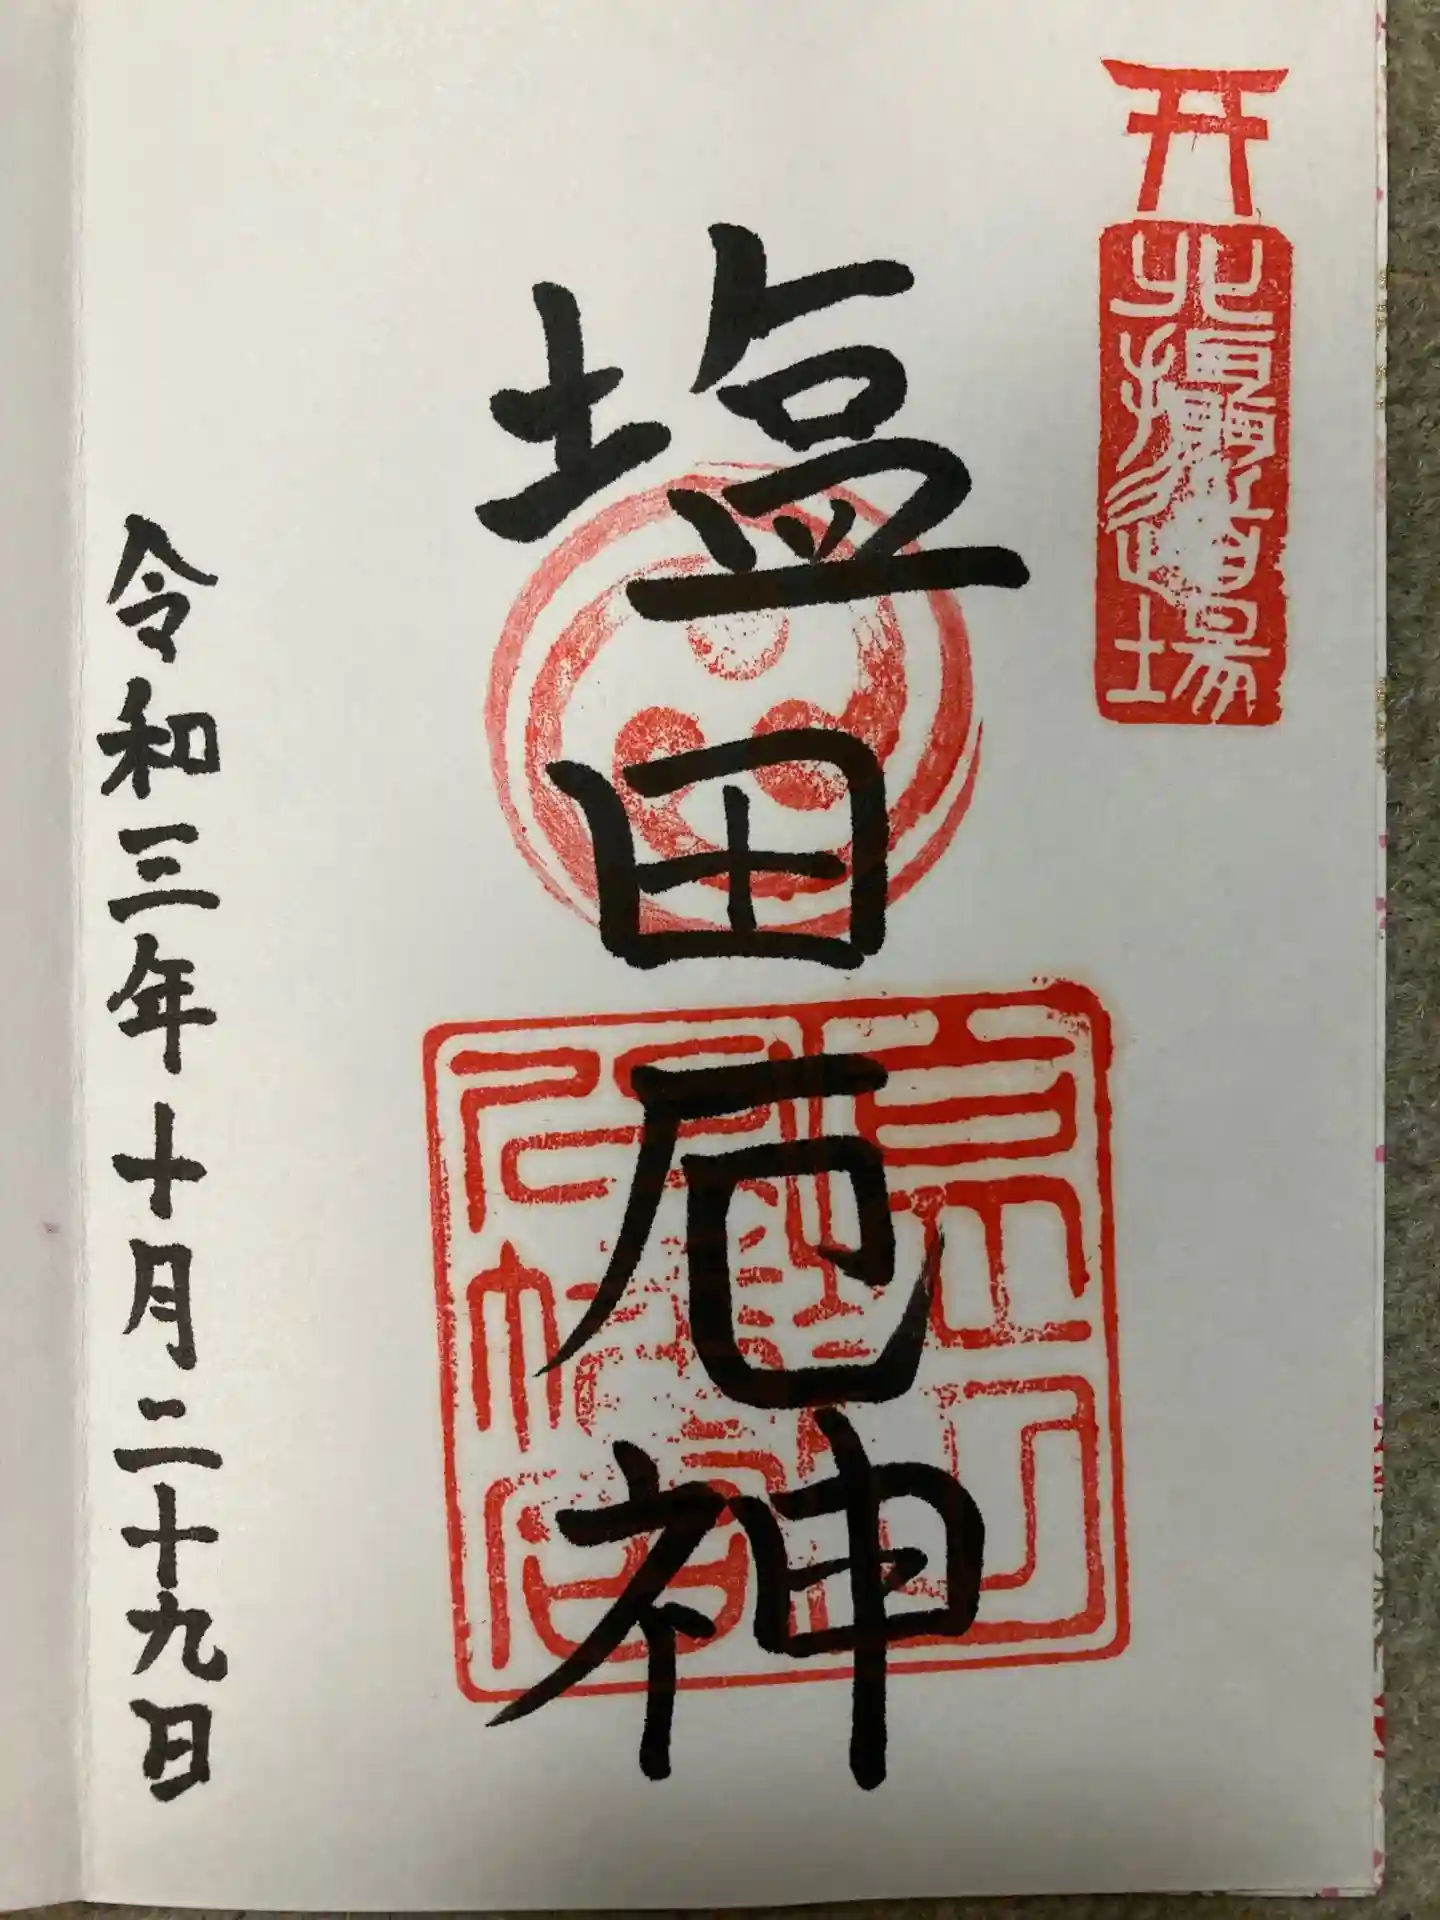 北摂霊場
塩田厄神
令和三年十月二十九日